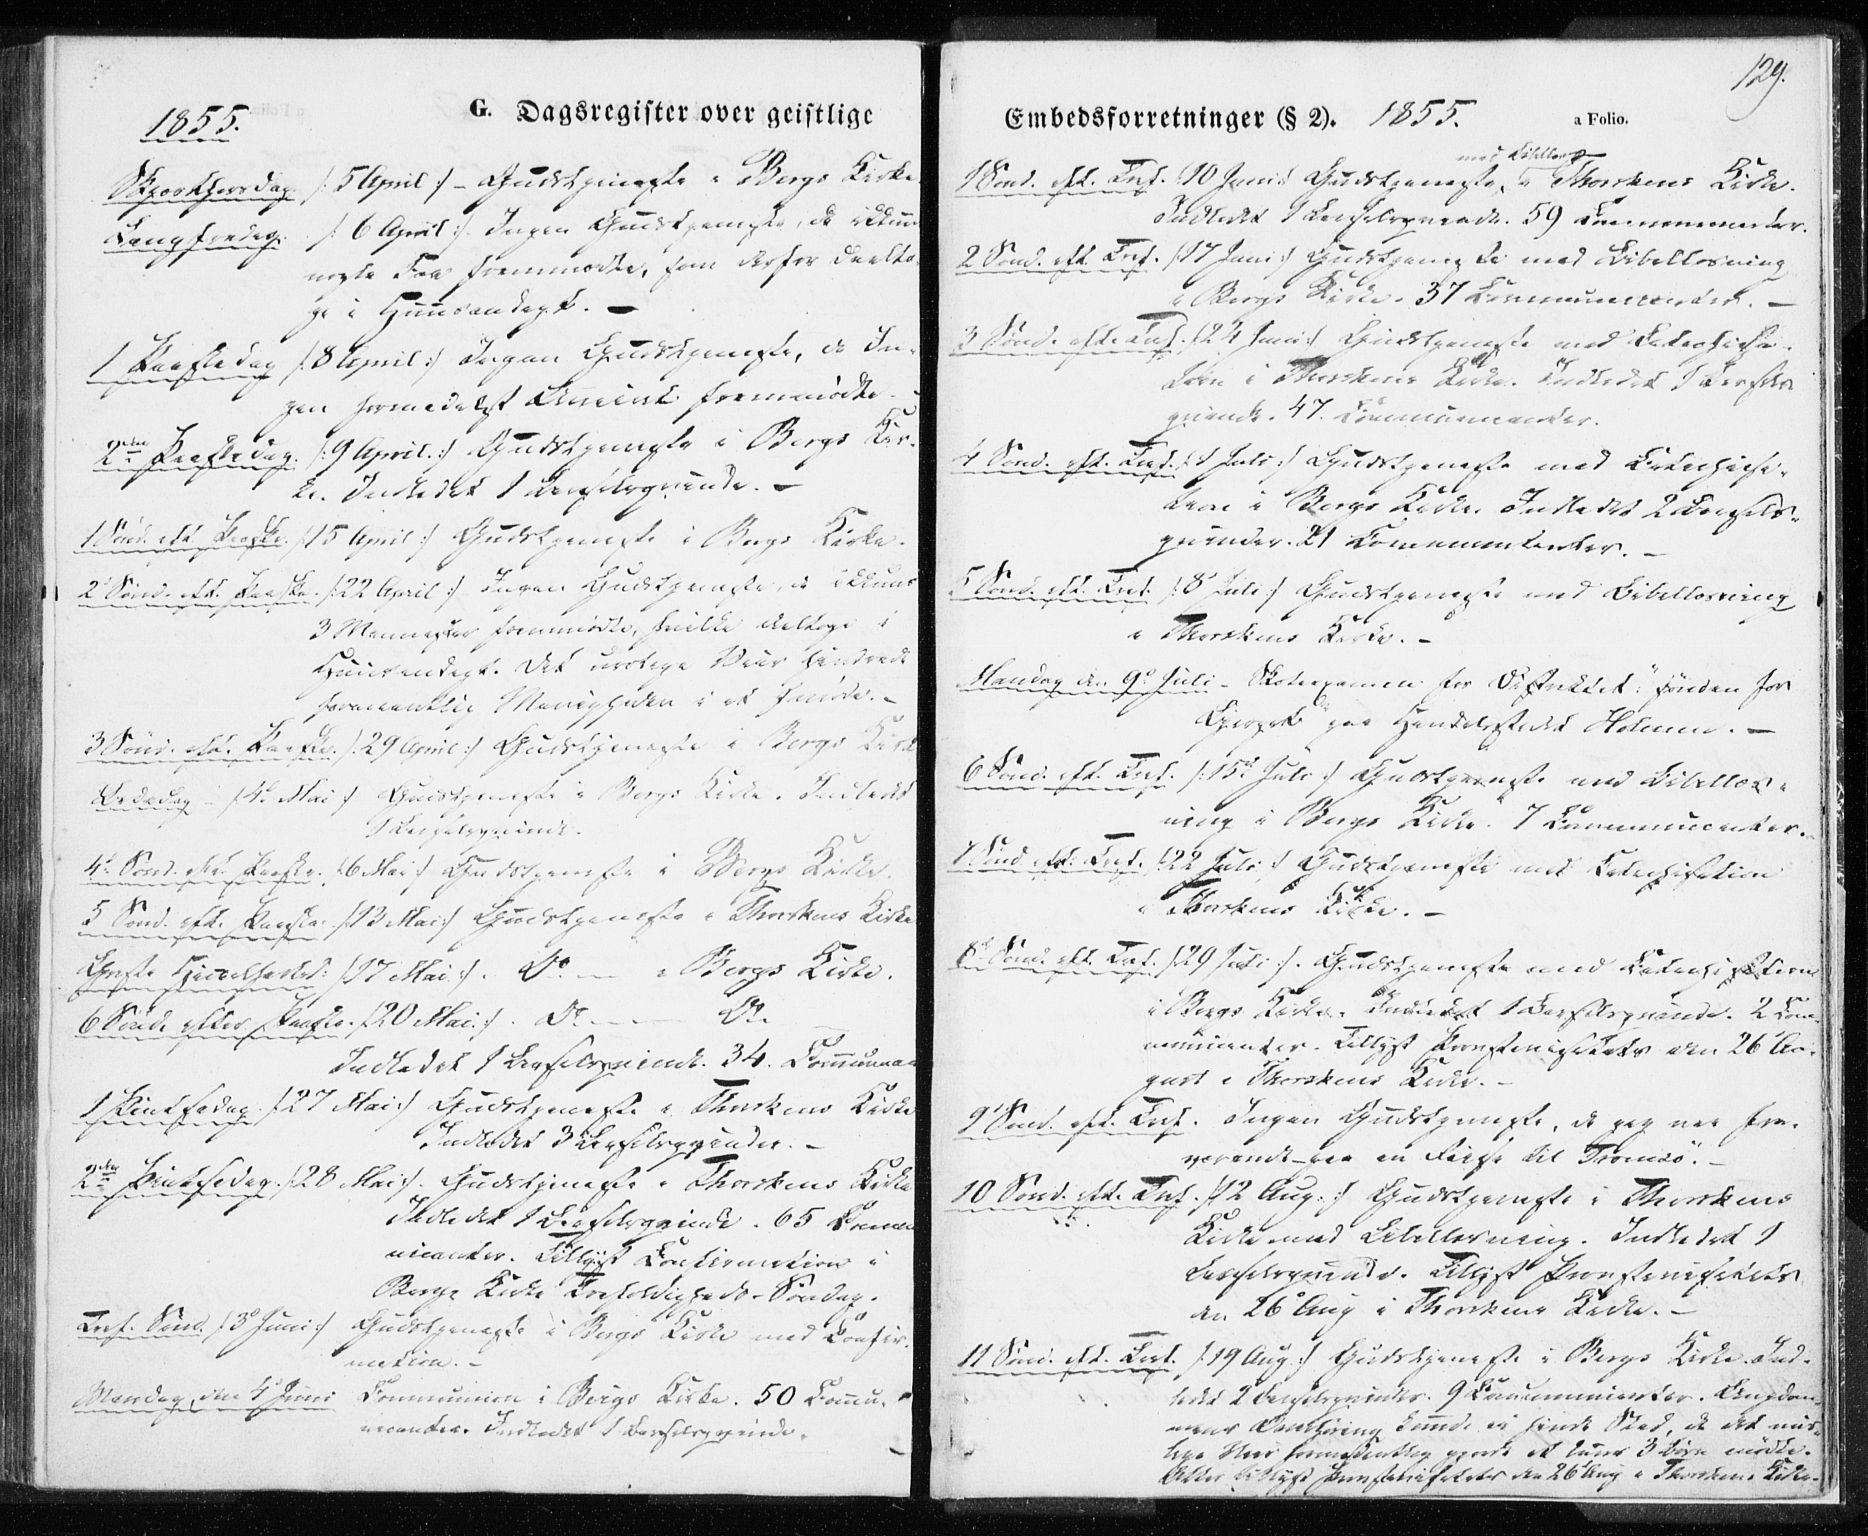 1855.
G. Dagsregister over geistlige
Skjærthorsdag /: 5 April :/ – Gudstjeneste i Bergs Kirke.
Langfredag. /: 6 April :/. Ingen Gudstjeneste, da ikkun
nogle Faa fremmødte, som derfor deelto-
ge i Huusandagt. –
1 Paaskedag /: 8 April :/ Ingen Gudstjeneste, da In-
gen formedelst Uveiret fremmødte. –
2den Paaskedag. /: 9 April. :/ Gudstjeneste i Bergs Kir-
ke. Indledet 1 Barselqvinde. –
1 Sønd. eft. Paaske. /: 15 April :/ Gudstjeneste i Bergs Kirke.
2d Sønd. eft. Paaske. /: 22 April :/ Ingen Gudstjeneste, da ikkuns
3 Mennesker fremmødte, hvilke deeltoge i
Huusandagt. Det urolige Veir hindrede
formeentlig Menigheden i at fremmøde. –
3 Sønd. eft. Paaske. /: 29 April :/ Gudstjeneste i Bergs Kirke
Bededag – /: 4d Mai :/ Gudstjeneste i Bergs Kirke. Indledet
1 Barselqvinde.
4d Sønd. eft. Paaske. /: 6 Mai :/ Gudstjeneste i Bergs Kirke.
5 Sønd. eft. Paaske. /: 13 Mai :/ Gudstjeneste i Thorskens Kirke
Christi Himmelfartsd: /: 17 Mai :/. Do — i Bergs Kirke.
6 Sønd. efter Paaske. /: 20 Mai. :/. Do. — — Do.
Indledet 1 Barselqvinde. 34. Communican
1 Pintsedag. /: 27 Mai :/ Gudstjeneste i Thorskens Kirke
Indledet 3 Barselqvinder. –
2den Pintsedag. /: 28 Mai :/. Gudstjeneste i Thorskens Kirke
Indledet 1 Barselqvinde. 65 Commu
nicanter. Tillyst Confirmation i
Bergs Kirke Trefoldigheds-Søndag.
Tref. Sønd. /: 3d Juni :/ Gudstjeneste i Bergs Kirke med Confir-
mation. –
Mandag, den 4d Juni Communion i Bergs Kirke. 50 Commu-
nicanter. Indledet 1 Barselqvinde.
129.
Embedsforretninger (§ 2). 1855. a Folio.
med Bibellæsning
1 Sønd. eft. Tref. /: 10 Juni :/ Gudstjeneste, i Thorskens Kirke.
Indledet 1 Barselqvinde. 59 Communicanter.
2 Sønd. eft. Tref. /: 17 Juni :/ Gudstjeneste med Bibellæsning
i Bergs Kirke. 37 Communicanter. –
3 Sønd. eft. Tref. /: 24 Juni :/ Gudstjeneste med Catechisa-
tion i Thorskens Kirke. Indledet 1 Barsel-
qvinde. 47. Communicanter.
4 Sønd. eft. Tref. /: 1 Juli :/ Gudstjeneste med Catechisa-
tion i Bergs Kirke. Indledet 2 Barsels-
qvinder. 21 Communicanter. –
5 Sønd. eft. Tref. /: 8d Juli :/ Gudstjeneste med Bibellæsning
i Thorskens Kirke. –
Mandag den 9d Juli – Skoleexamen for Districtet: "Sønden for
paa Handelsstedet Holmen. –
6 Sønd. eft. Tref. /: 15d Juli :/ Gudstjeneste med Bibellæs-
ning i Bergs Kirke. 7 Communicanter. –
7 Sønd. eft. Tref. /: 22 Juli :/ Gudstjeneste med Catechisation
i Thorskens Kirke. –
8d Sønd. eft. Tref. /: 29 Juli :/. Gudstjeneste med Catechisation
i Bergs Kirke. Indledet 1 Barselqvinde. 2 Com-
municanter. Tillyst Provstevisitats den 26 Au-
gust i Thorskens Kirke. –
9d Sønd. eft. Tref. Ingen Gudstjeneste, da jeg var fra-
værende paa en Reise til Tromsö. –
10 Sønd. eft. Tref. /: 12 Aug. :/ Gudstjeneste i Thorskens
Kirke med Bibellæsning. Indledet 1
Barselqvinde. Tillyst Provstevisitats
den 26d Aug i Thorskens Kirke. –
11 Sønd. eft. Tref. /: 19 Aug :/ Gudstjeneste i Bergs Kirke. Ind-
ledet 2 Barselqvinder. 9 Communicanter. Ungdom-
mens Overhøring kunde ei finde Sted, da det uro-
lige Veir formeentlig gjorde at kuns 3 Børn mødte.
Atter tillyst Provstevisitats den 26d Aug i Thorskens Kirke.